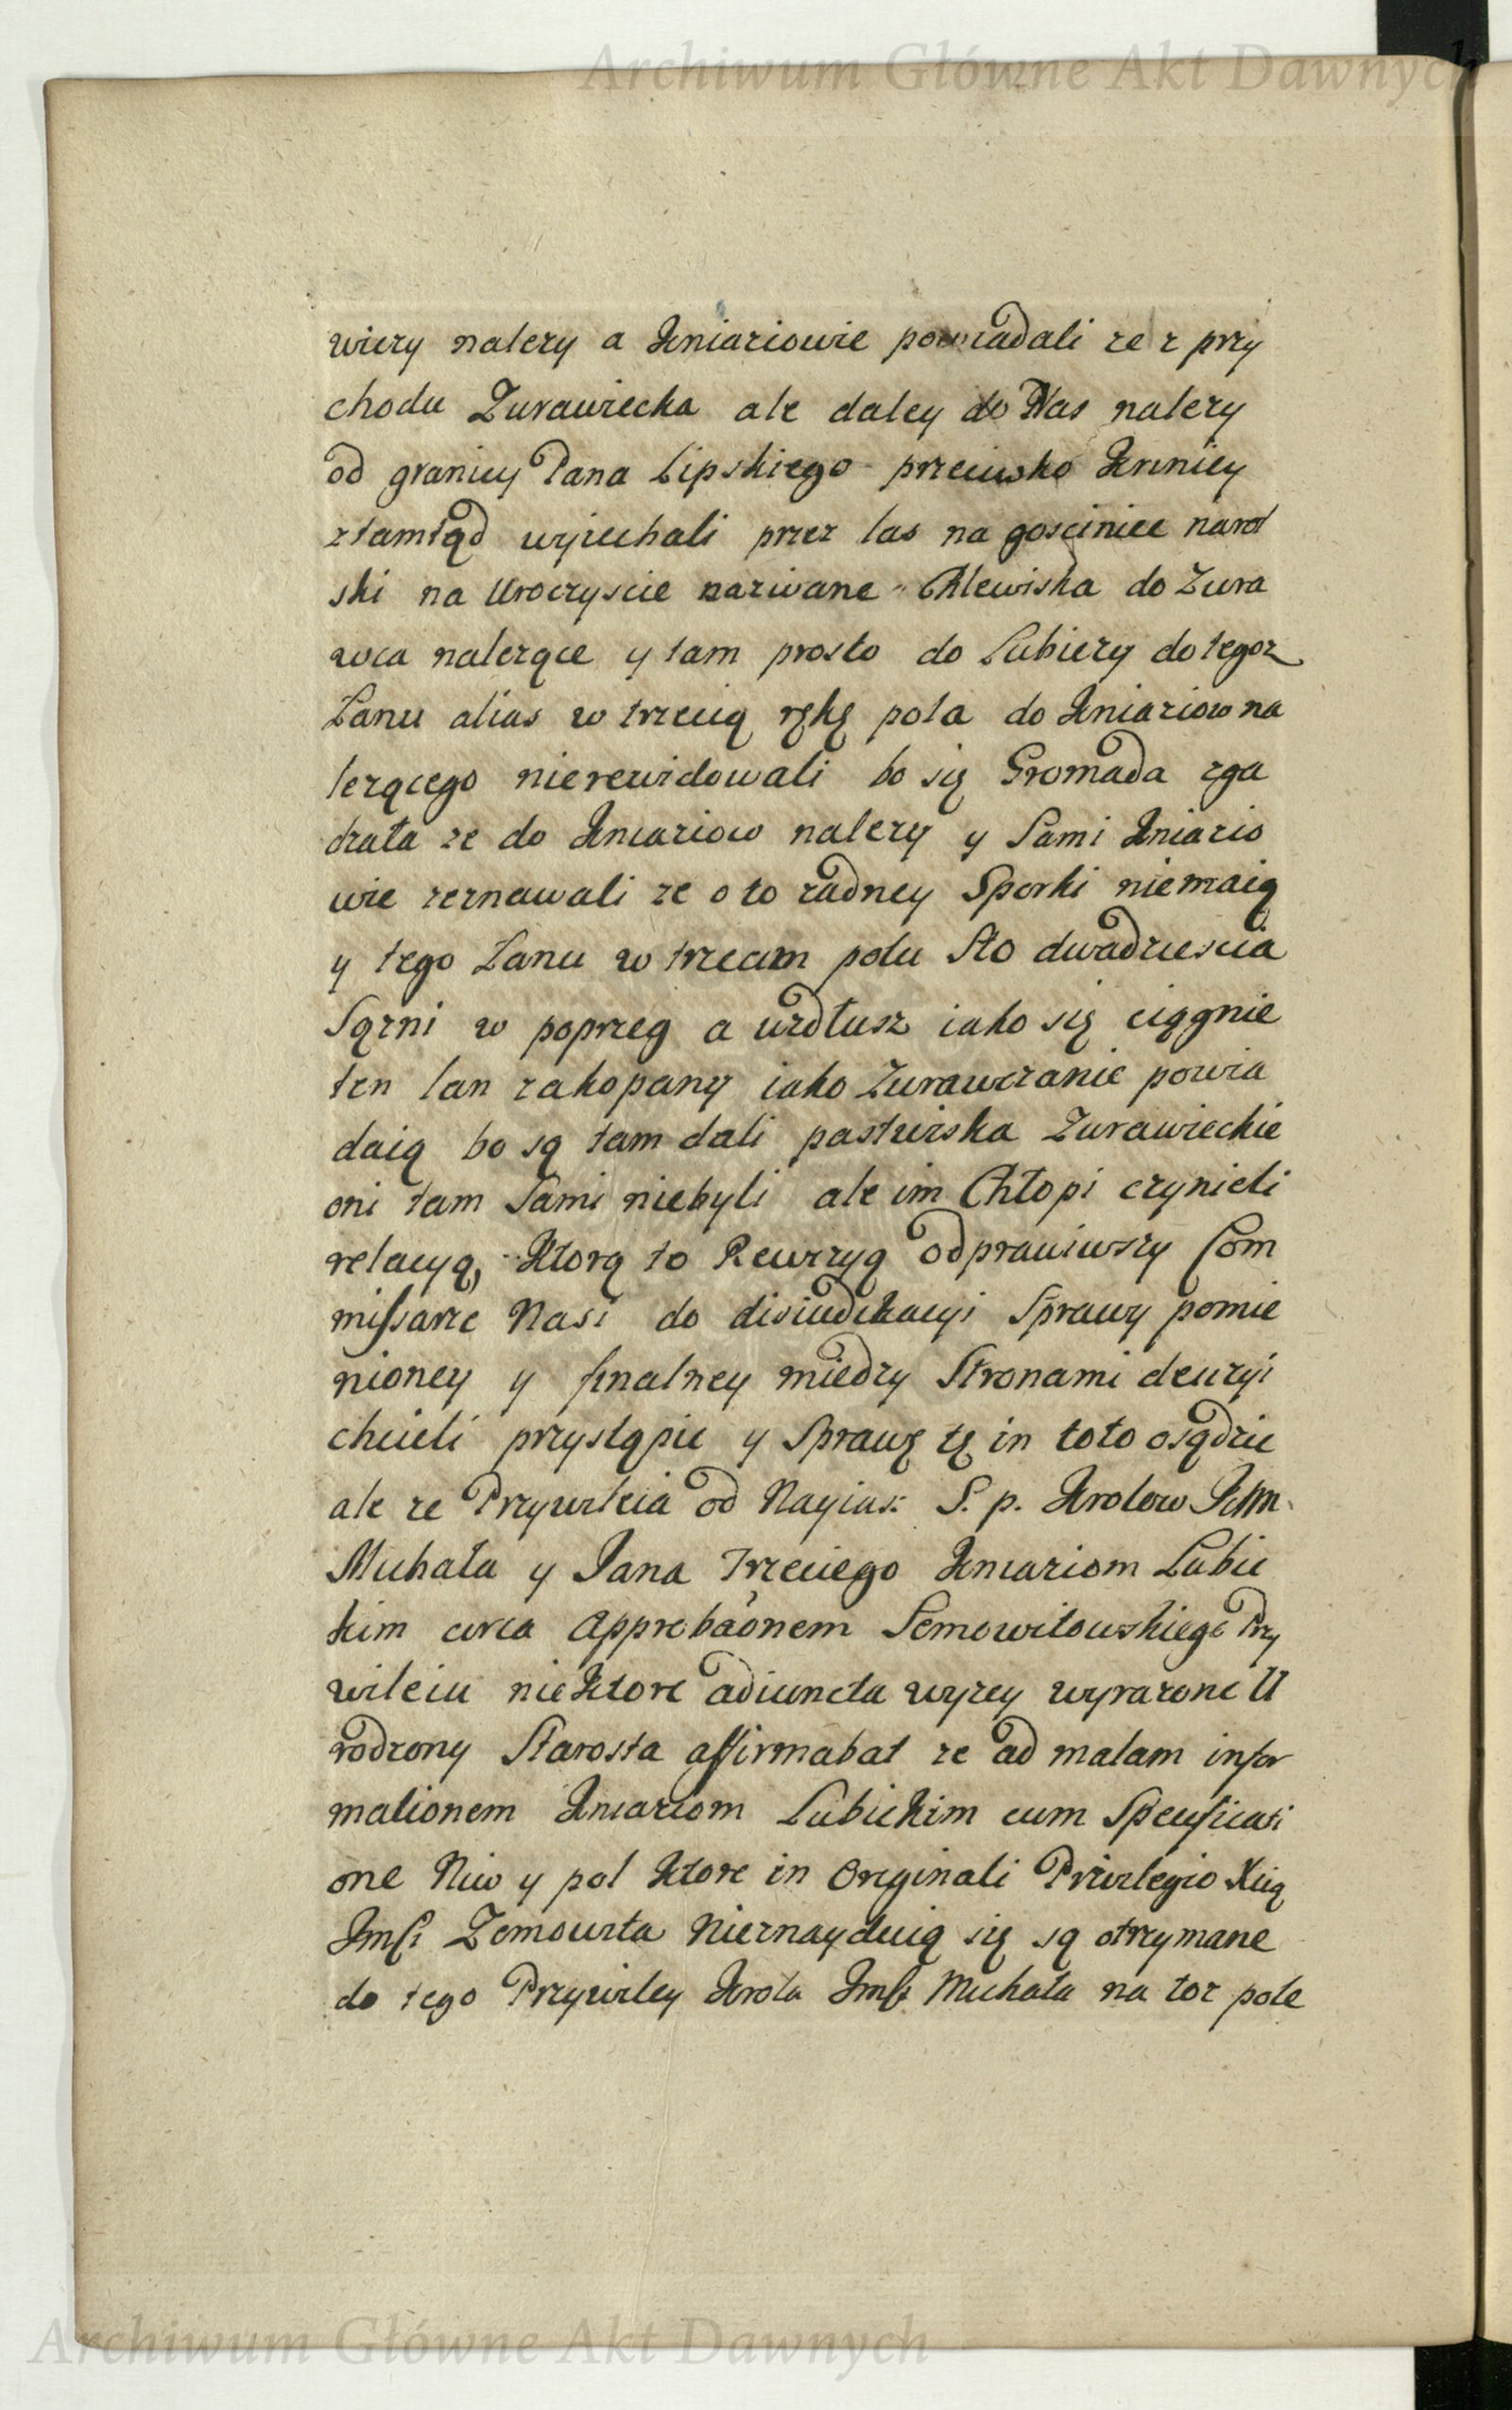 Archiwum Główne Akt Dawnych
wiezy nalezy a Kniaziowie powiadali ze z przy
chodu Zurawiecka ale daley do Nas nalezy
od granicy Pana Lipskiego przeciwko Krzniey
ztamtąd wyiechali przez las na gosciniec narol
ski na Uroczyscie nazwane Chlewiska do Zura
wca nalezące y tam prosto do Lubiczy do tegoz
Łanu alias w trzecią rękę pola do Kniaziow na
lezącego nierewidowali bo się Gromada zga
dzała ze do Kniaziow nalezy y Sami Kniazio
wie zeznawali ze o to zadney Sporki niemaią
y tego Łanu w trzecim polu Sto dwadziescia
Sązni w poprzeg a wzdłusz iako się ciągnie
ten lan zakopany iako Zurawczanie powia
daią bo są tam dali pastwiska Zurawieckie
oni tam Sami niebyli ale im Chłopi czynieli
relacyą, Ktorą to Rewizyą odprawiwszy Com
missarze Nasi do diiudikacyi Sprawy pomie
nioney y finalney miedzy Stronami decizyi
chcieli przystąpic y Sprawę tę in toto osądzic
ale ze Przywileia od Nayias: S. p. Krolow Ichm
Michała y Jana Trzeciego Kniaziom Lubic
kim circa Approbaonem Semowitowskiego Przy
wileiu nieKtore adiuncta wyzey wyrazone U
rodzony Starosta affirmabat ze ad malam infor
mationem Kniaziom LubicKim cum Specificati
one Niw y pol Ktore in Originali Privilegio Xiią
Jmści Zemowita Nieznayduią się są otrzymane
do tego Przywiley Krola Jmści Michała na toz pole
Archiwum Główne Akt Dawnych